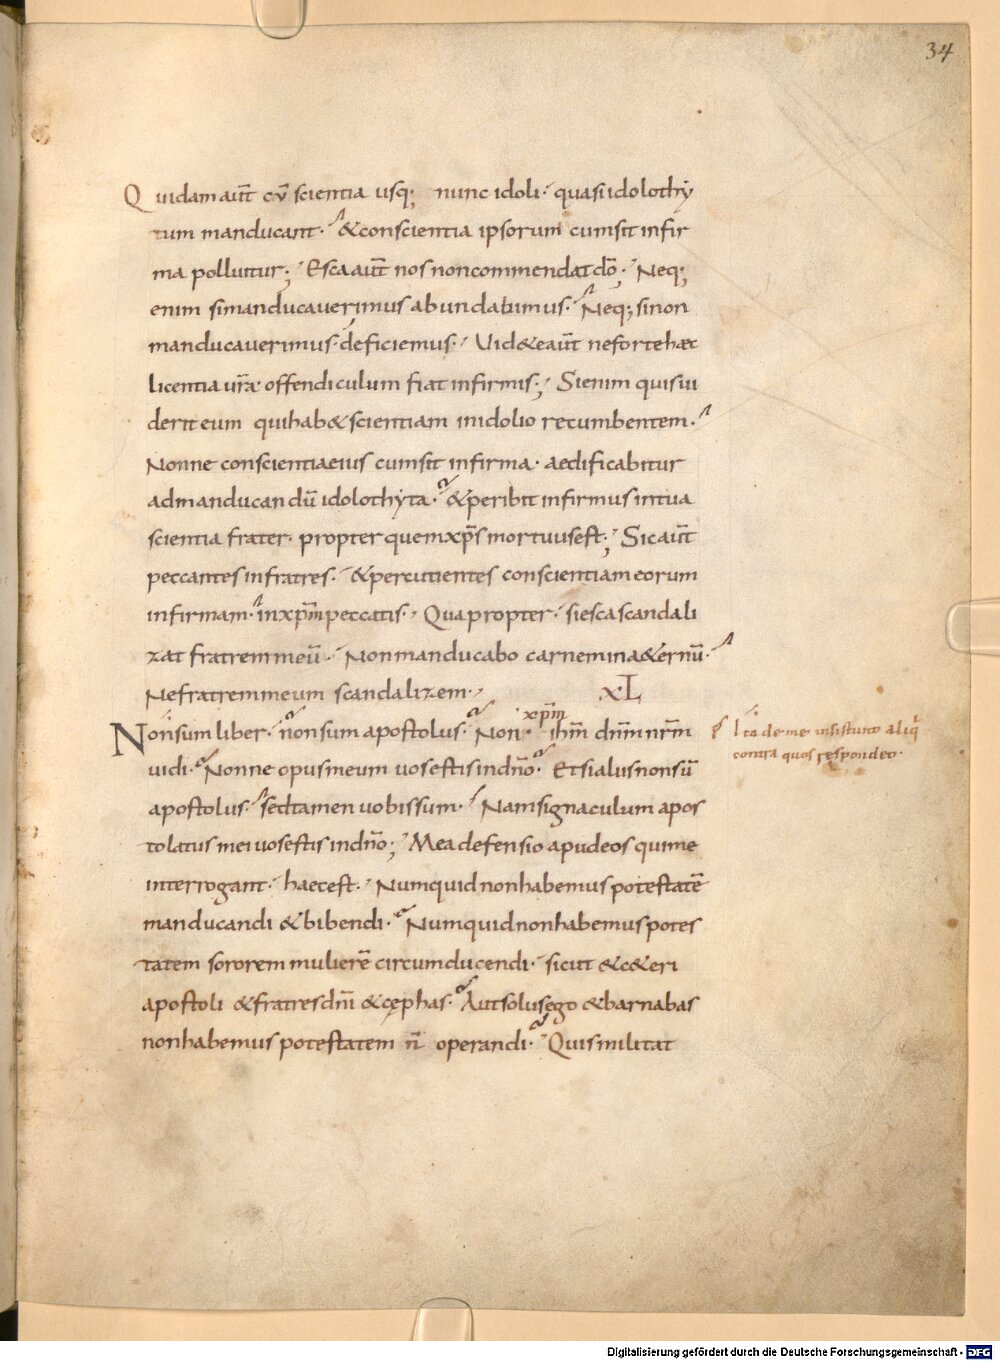 34
Quidam aut̄ cū scientia usq; nunc idoli· quasi idolothy
tum manducant· & conscientia ipsorum cum sit infir
ma polluitur; Esca aut̄ nos non commendat dō· Neq;
enim si manducaverimus abundabimus· Neq; si non
manducaverimus· deficiemus· Uid&e aut̄ ne forte haec
licentia ur̄a offendiculum fiat infirmis; Si enim quis ui
derit eum qui hab& scientiam in idolio recumbentem·
Nonne conscientia eius cum sit infirma· aedificabitur
ad manducandū idolothyta· & peribit infirmus in tua
scientia frater· propter quem xp̄s mortuus est; Sic aut̄
peccantes in fratres· & percutientes conscientiam eorum
infirmam· in xp̄m peccatis· Quapropter· si esca scandali
zat fratrem meū· Non manducabo carnem in a&ernū·
Ne fratrem meum scandalizem· XL
Non sum liber· non sum apostolus· Non· xp̄m ih̄m dn̄m nr̄m
uidi· Nonne opus meum uos estis in dn̄o· Et si alus non sū
apostolus· sed tamen uobis sum· Nam signaculum apos
tolatus mei uos estis in dn̄o; Mea defensio apud eos qui me
interrogant· haec est· Numquid non habemus potestatē
manducandi & bibendi· Numquid non habemus potes
tatem sororem mulierē circumducendi· sicut & c&eri
apostoli & fratres dn̄i & cęphas· Aut solus ego & barnabas
non habemus potestatem n̄ operandi· Quis militat
Ita de me insistunt aliq̇
contra quos respondeo·
Digitalisierung gefördert durch die Deutsche Forschungsgemeinschaft - DFG